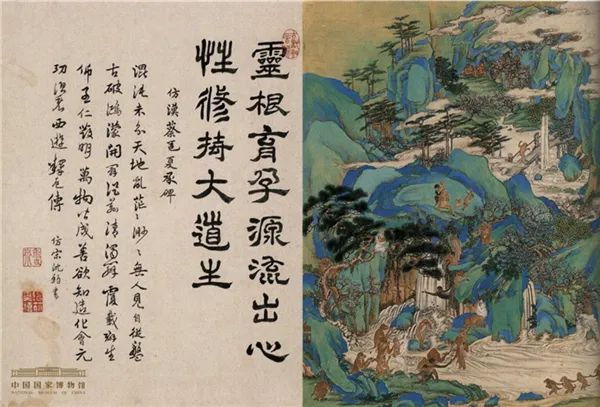 靈根育孕源流出心
性修持大道生
仿漢蔡邕夏承碑
混沌未分天地亂茫〻渺〻無人見自從盤
古破鴻濛開闢從茲清濁辨覆載群生
仰至仁發明萬物皆成善欲知造化會元
功須看西遊釋厄傳
仿宋沈
書
中国国家博物馆
NATIONAL MUSEUM OF CHINA